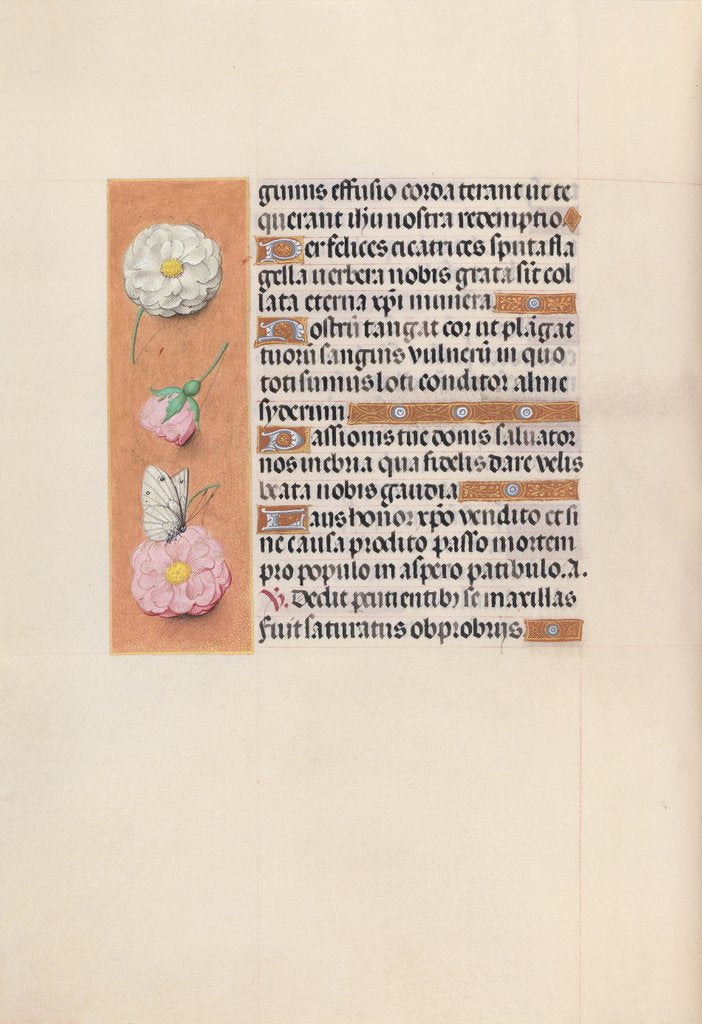 guinis effusio corda terant ut te
querant ihu nostra redemptio.
Per felices cicatrices sputa fla
gella uerbera nobis grata sīt col
lata eterna xpi munera.
Nostrū tangat cor ut plāgat
tuorū sanguis vulnerū in quo
toti sumus loti conditor alme
syderum
Passionis tue donis saluator
nos inebria qua fidelis dare velis
beata nobis gaudia
Laus honor xpo vendito et si
ne causa prodito passo mortem
pro populo in aspero patibulo. A.
V. Dedit percutientibꝫ se maxillas
Fuit saturatus obprobrijs